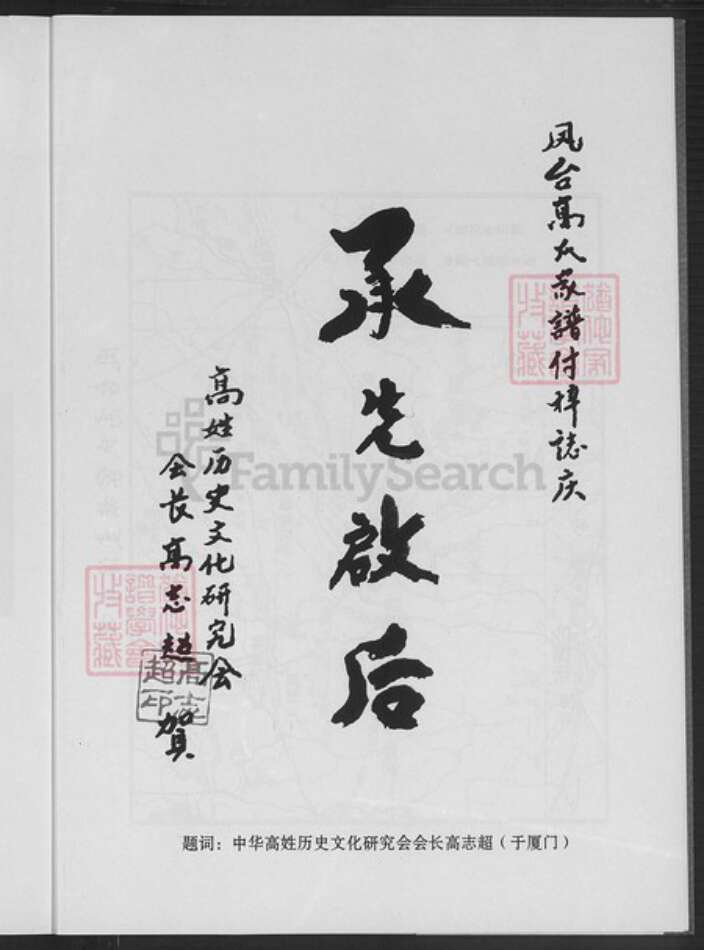 凤台高氏家譜付梓誌庆
承先啟后
高姓历史文化研究会
会长高志超
賀
高志超印
FamilySearch
题词：中华高姓历史文化研究会会长高志超（于厦门）